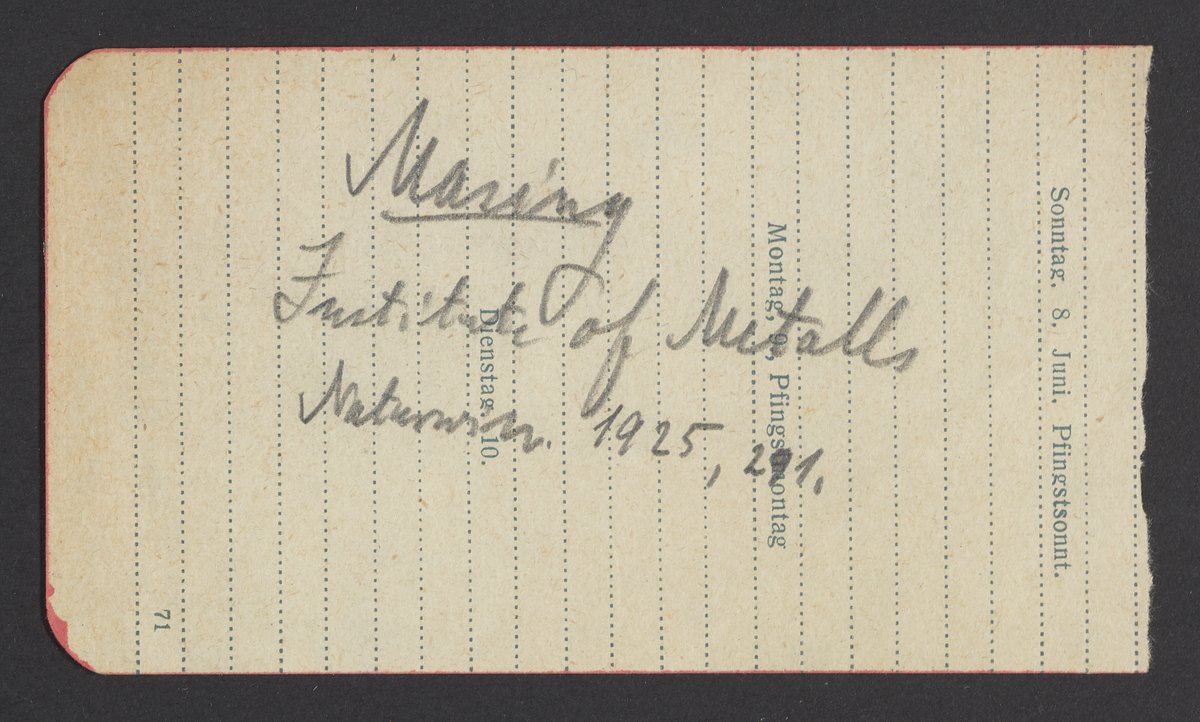 Masing
Institute of Metalls
Naturwiss. 1925, 291.
Sonntag, 8. Juni. Pfingstsonnt.
Montag, 9., Pfingstmontag
Dienstag, 10.
71